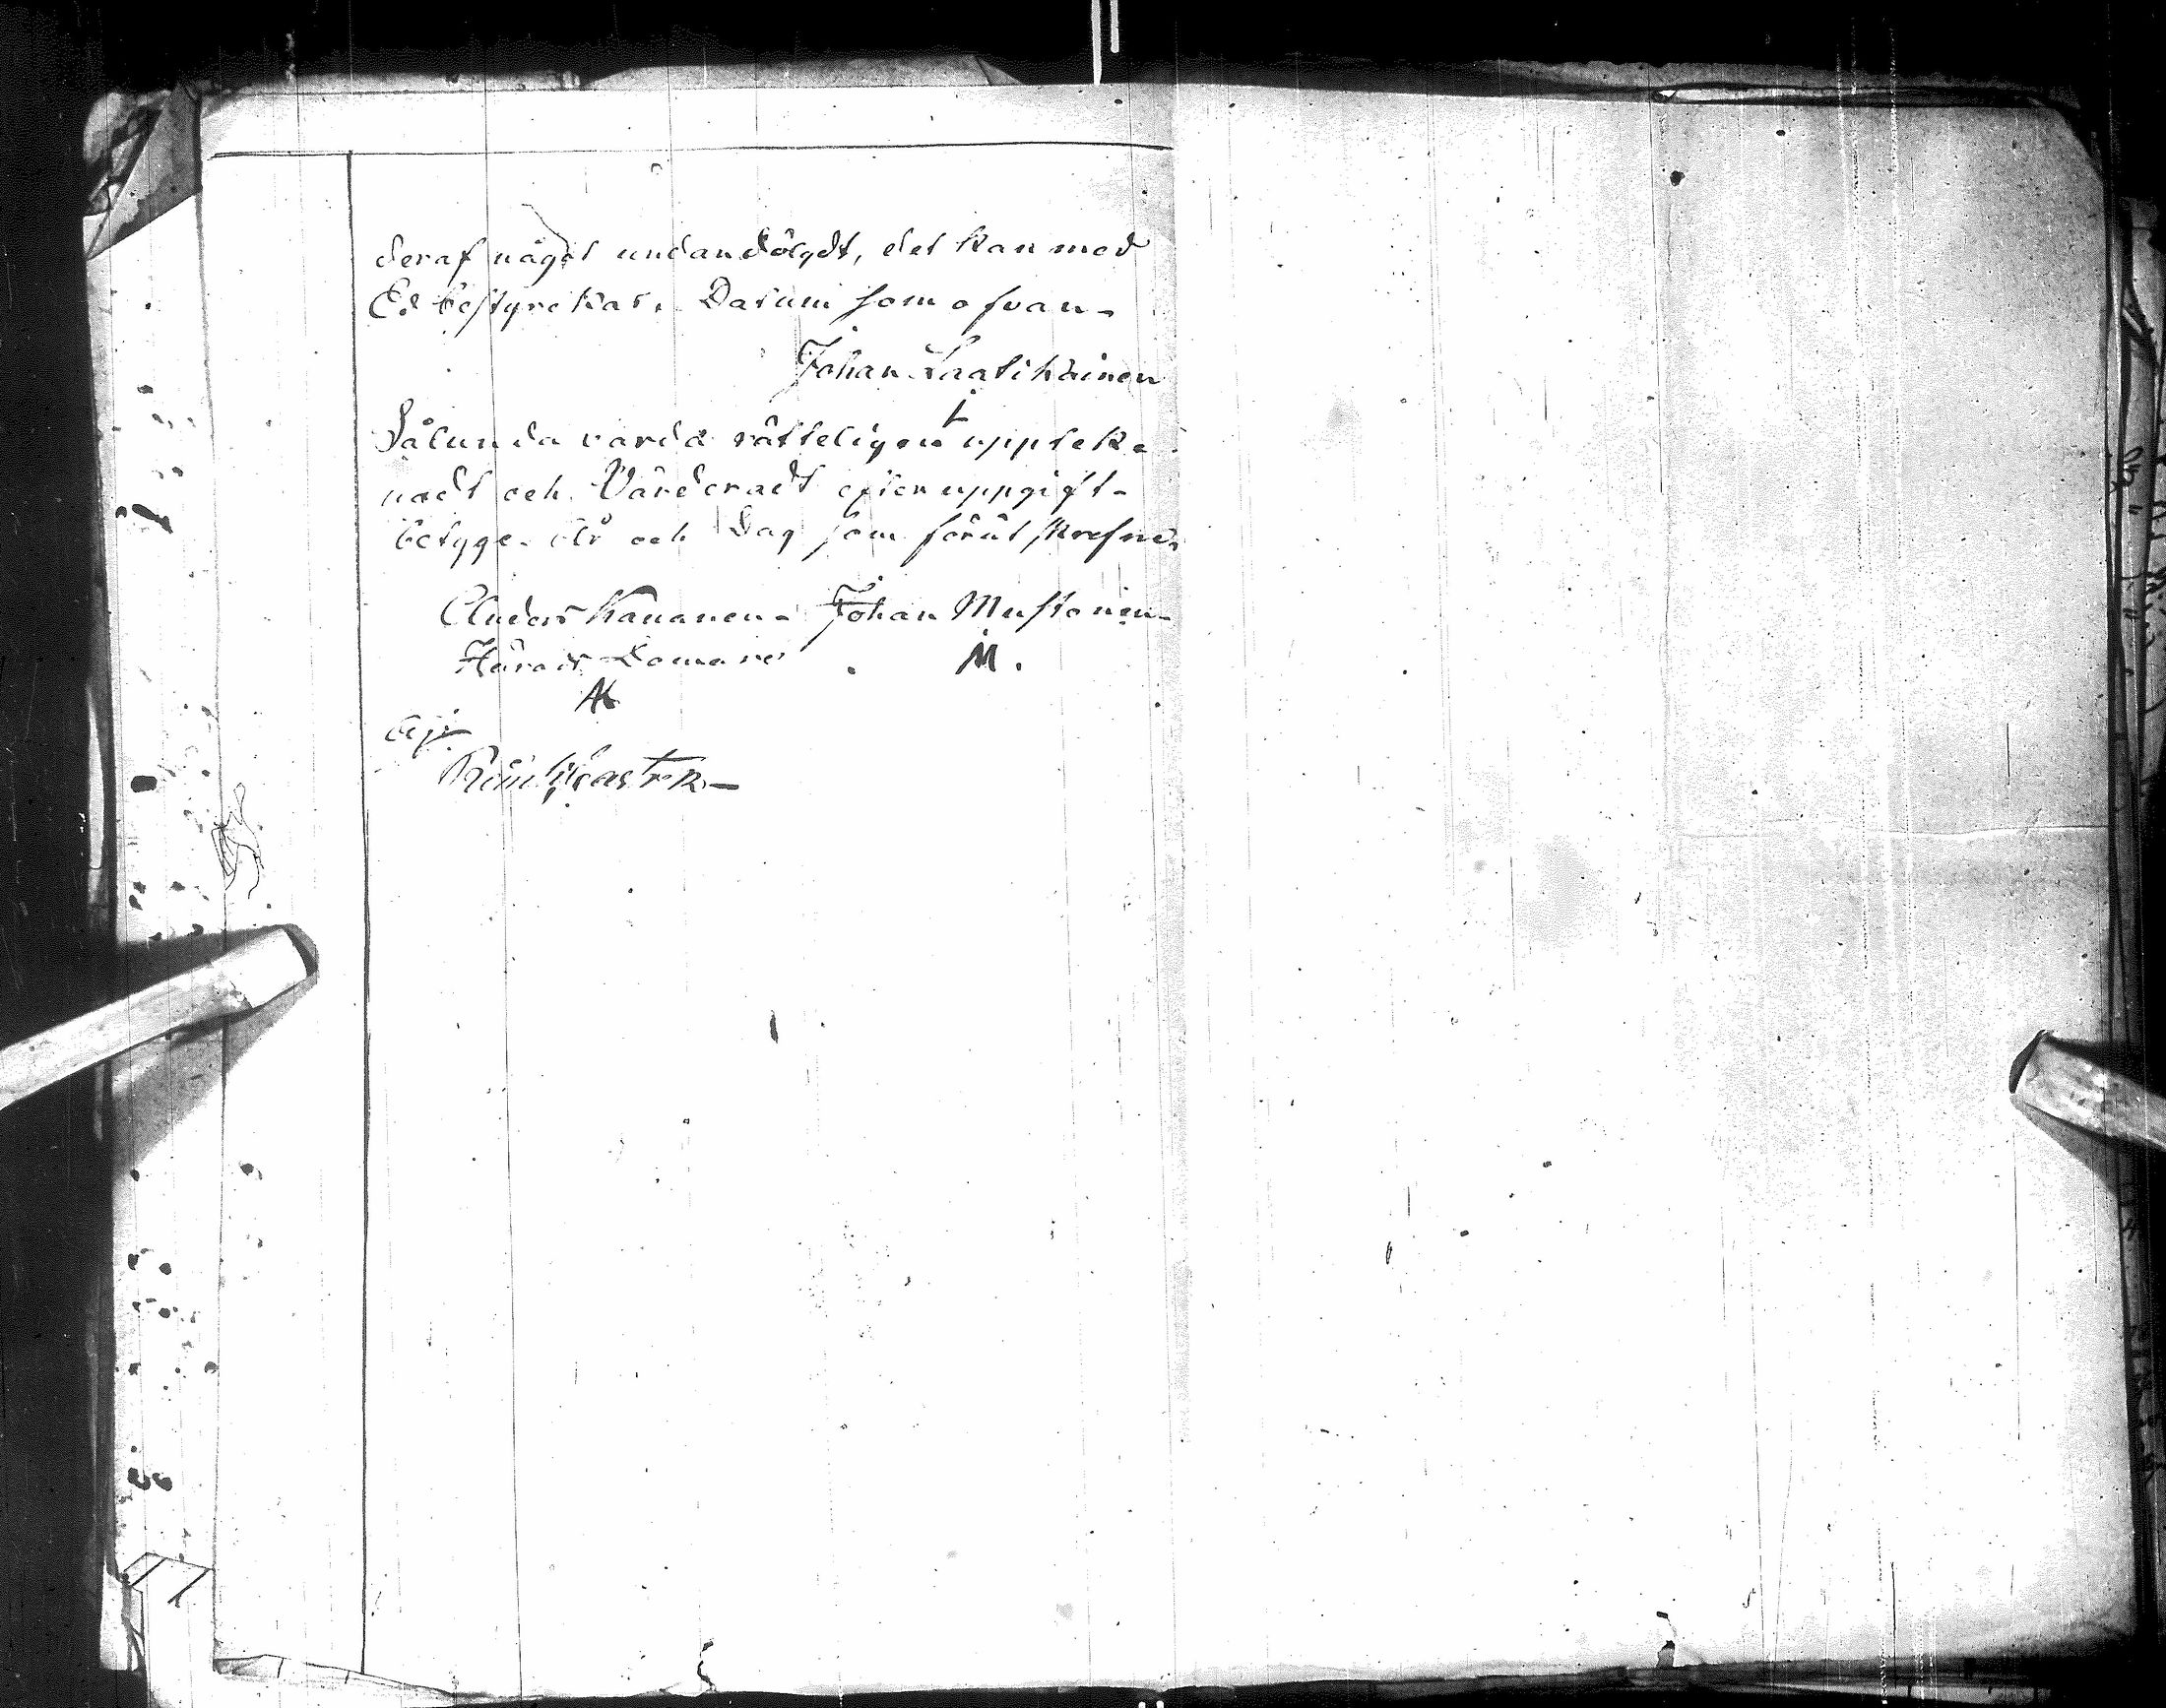 deraf något undandölgdt, det kan med
Ed bestyrckas. Datum som ofvan-
Johan Laatikainen
Sålunda varda rätteligen uppteke-
nadt och Värderadt efter uppgift-
betyge. År och Dag som förut skrefne.
Anders Kananen- Johan Mustonen-
Härads Domare M.
AK